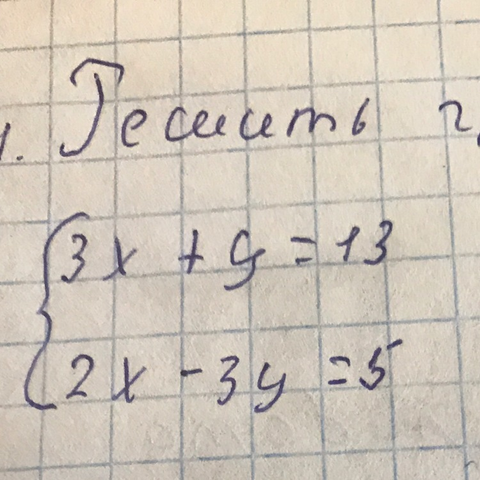 1. Решить г
{3x + y = 13
2x - 3y = 5